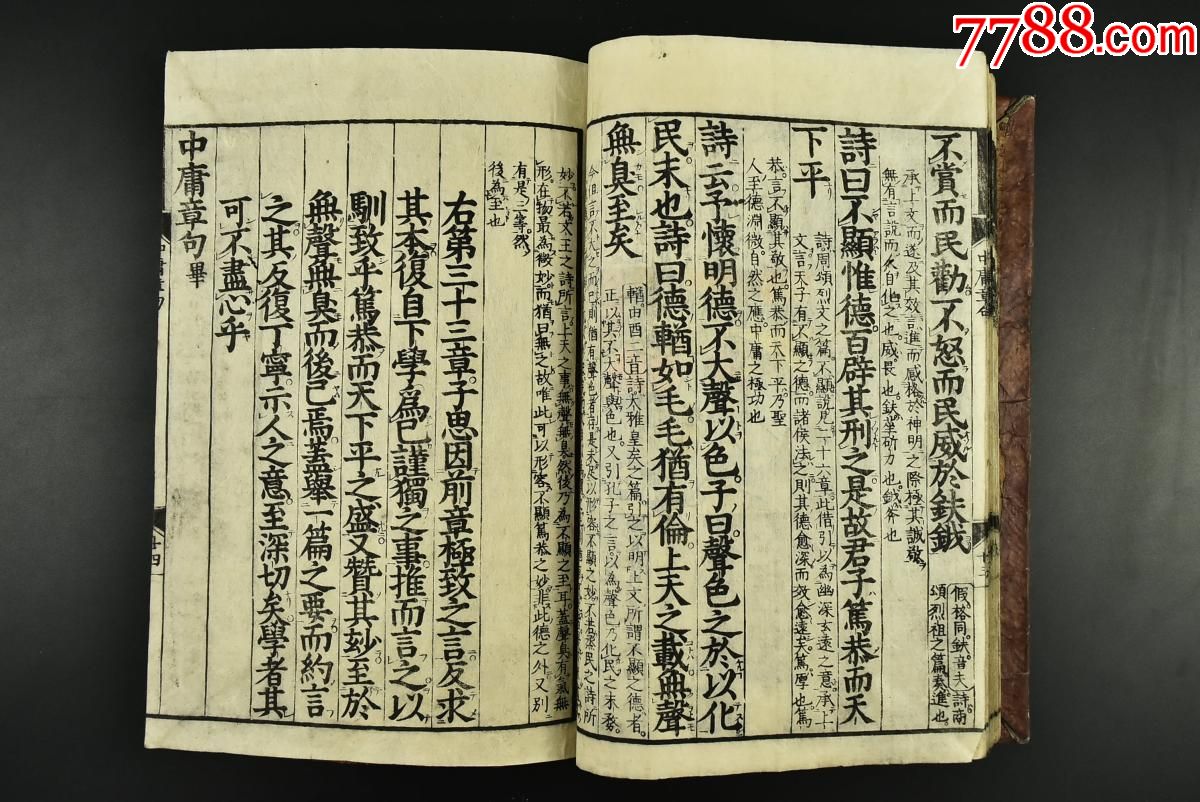 7788.com
不賞而民勸不怒而民威於鈇鉞
假格同鈇音夫詩商
頌烈祖之篇奏進也
承上文而遂及其效言進而感格於神明之際極其誠敬
無有言說而人自化之也威畏也鈇莝斫刀也鉞斧也
詩曰不顯惟德百辟其刑之是故君子篤恭而天
下平
詩周頌烈文之篇不顯說見二十六章此借引以為幽深玄遠之意承上
文言天子有不顯之德而諸侯法之則其德愈深而效愈遠矣篤厚也篤
恭言不顯其敬也篤恭而天下平乃聖
人至德淵微自然之應中庸之極功也
詩云予懷明德不大聲以色子曰聲色之於以化
民末也詩曰德輶如毛毛猶有倫上天之載無聲
無臭至矣
輶由酉二音詩大雅皇矣之篇引之以明上文所謂不顯之德者
正以其不大聲與色也又引孔子之言以為聲色乃化民之末務
今但言不大之而已則猶有聲色者存是未足以形容不顯之妙不若烝民之詩所
妙不若文王之詩所言上天之事無聲無臭然後乃為不顯之至耳蓋聲臭有氣無
形在物最為微妙而猶曰無之故唯此可以形容不顯篤恭之妙非此德之外又別
有是三等然
後為至也
右第三十三章子思因前章極致之言反求
其本復自下學爲己謹獨之事推而言之以
馴致乎篤恭而天下平之盛又贊其妙至於
無聲無臭而後已焉蓋舉一篇之要而約言
之其反復丁寧示人之意至深切矣學者其
可不盡心乎
中庸章句畢
廿四